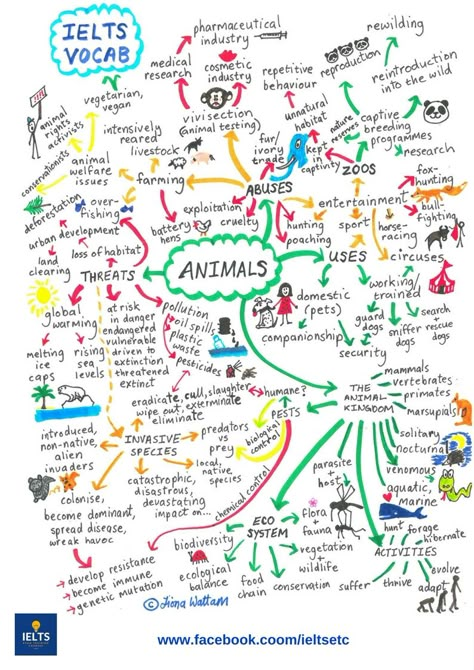 IELTS
VOCAB
pharmaceutical
industry
rewilding
medical
research
cosmetic
industry
repetitive
behaviour
reproduction
reintroduction
into the wild
vegetarian,
vegan
animal
rights
activists
vivisection
(animal testing)
unnatural
habitat
nature
reserves
captive
breeding
programmes
intensively
reared
livestock
fur/
ivory
trade
kept
in
captivity
research
conservationists
animal
welfare
issues
farming
ABUSES
ZOOS
fox-
hunting
deforestation
over-
fishing
exploitation
entertainment
bull-
fighting
urban development
battery
hens
cruelty
hunting
poaching
sport
horse-
racing
land
clearing
loss of habitat
THREATS
ANIMALS
USES
circuses
working/
trained
global
warming
at risk
in danger
endangered
vulnerable
driven to
extinction
threatened
extinct
pollution
oil spill,
plastic
waste
pesticides
domestic
(pets)
companionship
guard
dogs
sniffer
dogs
search
rescue
dogs
security
melting
ice
caps
rising
sea
levels
eradicate, cull, slaughter
wipe out, exterminate
eliminate
humane?
PESTS
THE
ANIMAL
KINGDOM
mammals
vertebrates
primates
marsupials
introduced,
non-native,
alien
invaders
INVASIVE
SPECIES
predators
vs
prey
biological
control
solitary
nocturnal
venomous
aquatic,
marine
local,
native
species
colonise,
become dominant,
spread disease,
wreak havoc
catastrophic,
disastrous,
devastating
impact on...
chemical control
parasite
+
host
ECO
SYSTEM
flora
+
fauna
hunt
forage
hibernate
ACTIVITIES
biodiversity
vegetation
+
wildlife
develop resistance
become immune
genetic mutation
ecological
balance
food
chain
conservation
suffer
thrive
adapt
evolve
© Fiona Wattam
IELTS
www.facebook.coom/ieltsetc